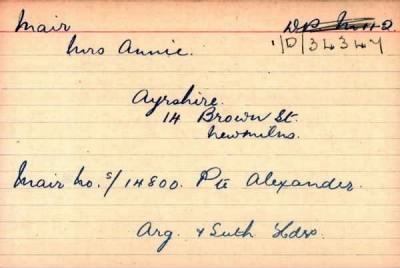 Mair
Mrs Annie.
1/D/34347
Ayrshire.
14 Brown St.
Newmilns.
Mair No. S/14800. Pte Alexander.
Arg. & Suth Hdrs